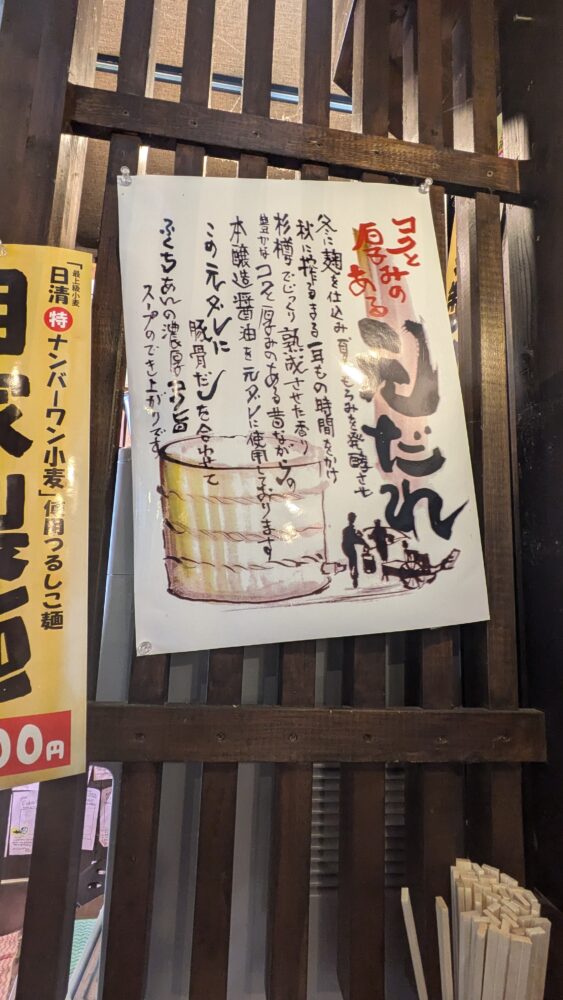 コクと
厚みの
ある
元だれ
冬に麹を仕込み夏もろみを発酵させ
秋に搾るまる一年もの時間をかけ
杉樽でじっくり熟成させた香り
豊かなコクと厚みのある昔ながらの
本醸造醤油を元ダレに使用しております
この元ダレに
豚骨だしを合わせて
ふくちあんの濃厚コク旨
スープのでき上がりです
「最上級小麦
日清特ナンバーワン小麦」使用つるしこ麺
自家製麺
00円